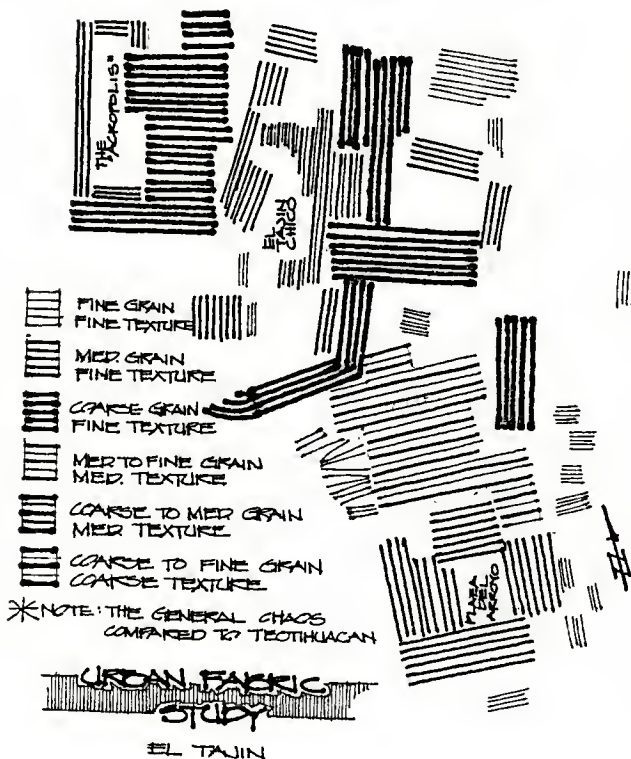 THE
"ACROPOLIS"
EL
TAJIN
CHICO
FINE GRAIN
FINE TEXTURE
MED. GRAIN
FINE TEXTURE
COARSE GRAIN
FINE TEXTURE
MED TO FINE GRAIN
MED. TEXTURE
COARSE TO MED GRAIN
MED. TEXTURE
COARSE TO FINE GRAIN
COARSE TEXTURE
PLAZA
DEL
ARROYO
N
*NOTE: THE GENERAL CHAOS
COMPARED TO TEOTIHUACAN
URBAN FABRIC
STUDY
EL TAJIN